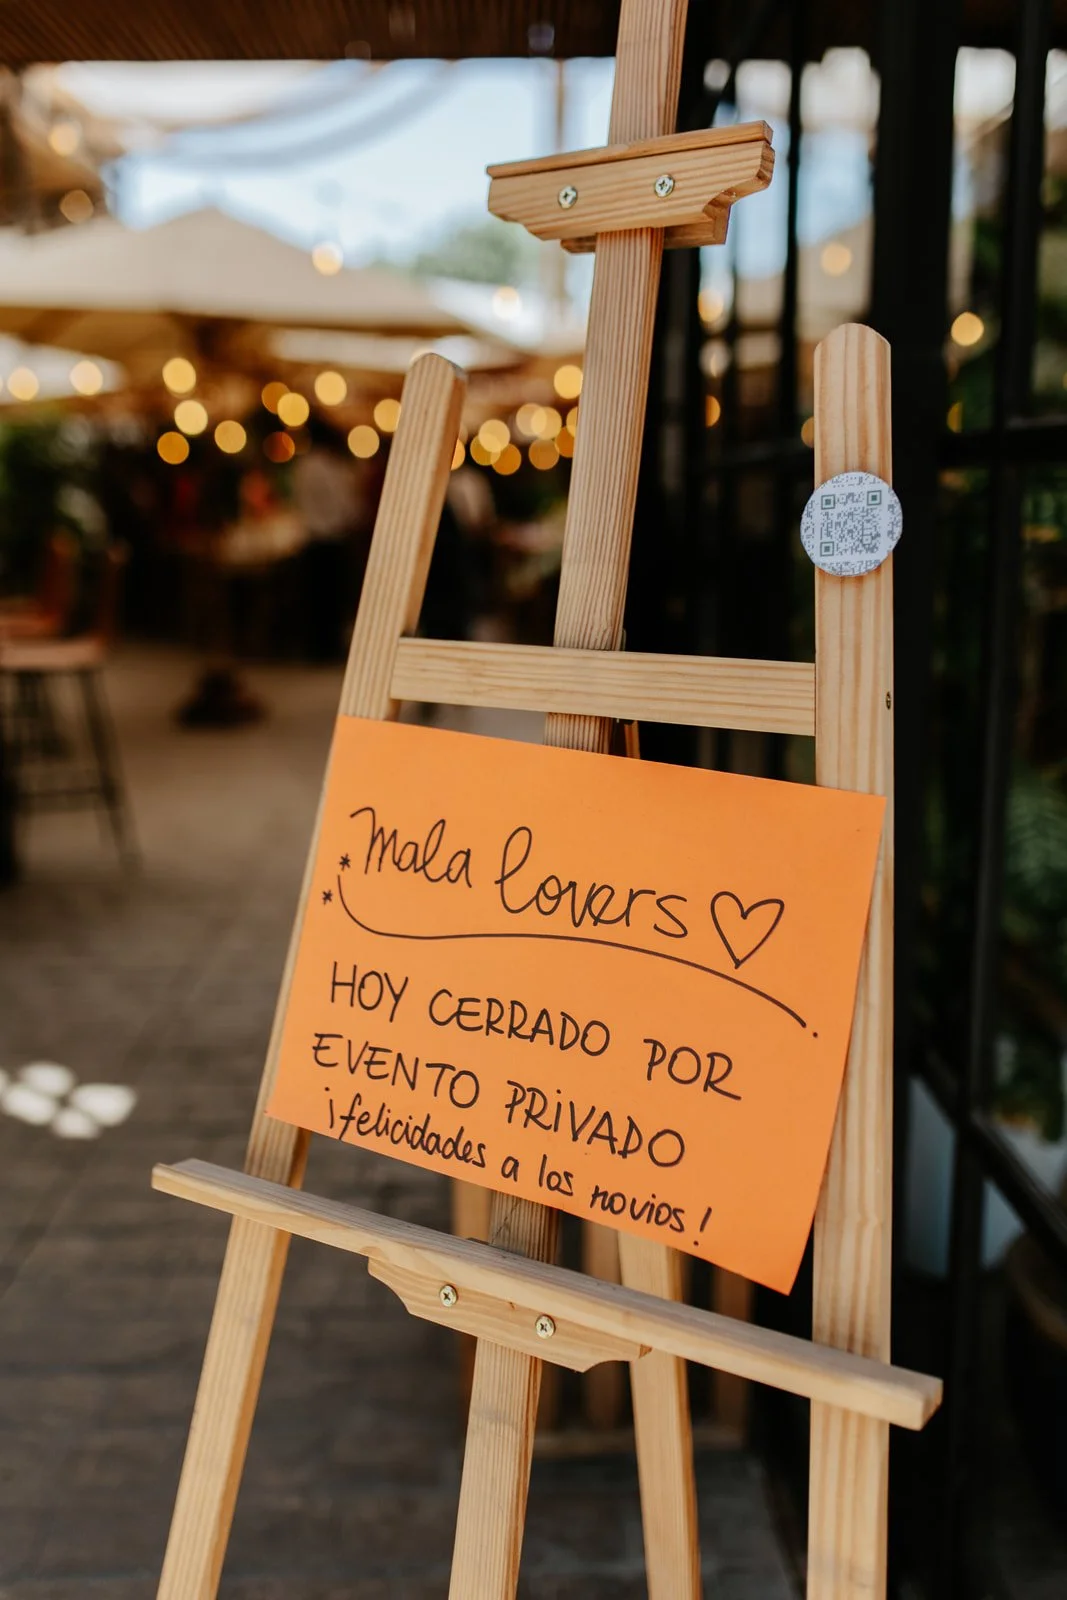 Mala lovers ♡
HOY CERRADO POR
EVENTO PRIVADO
¡felicidades a los novios!